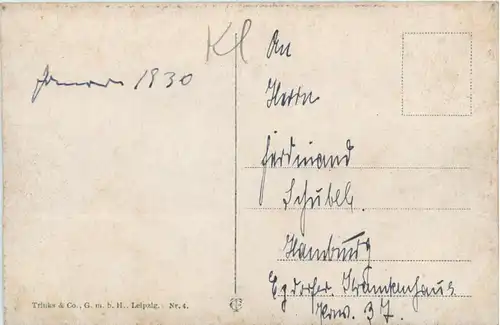 Kl
Januar 1930
An
Herrn
Ferdinand
Schübel.
Hamburg
Krankenhaus
37.
Trinks & Co., G. m. b. H., Leipzig. Nr. 4.